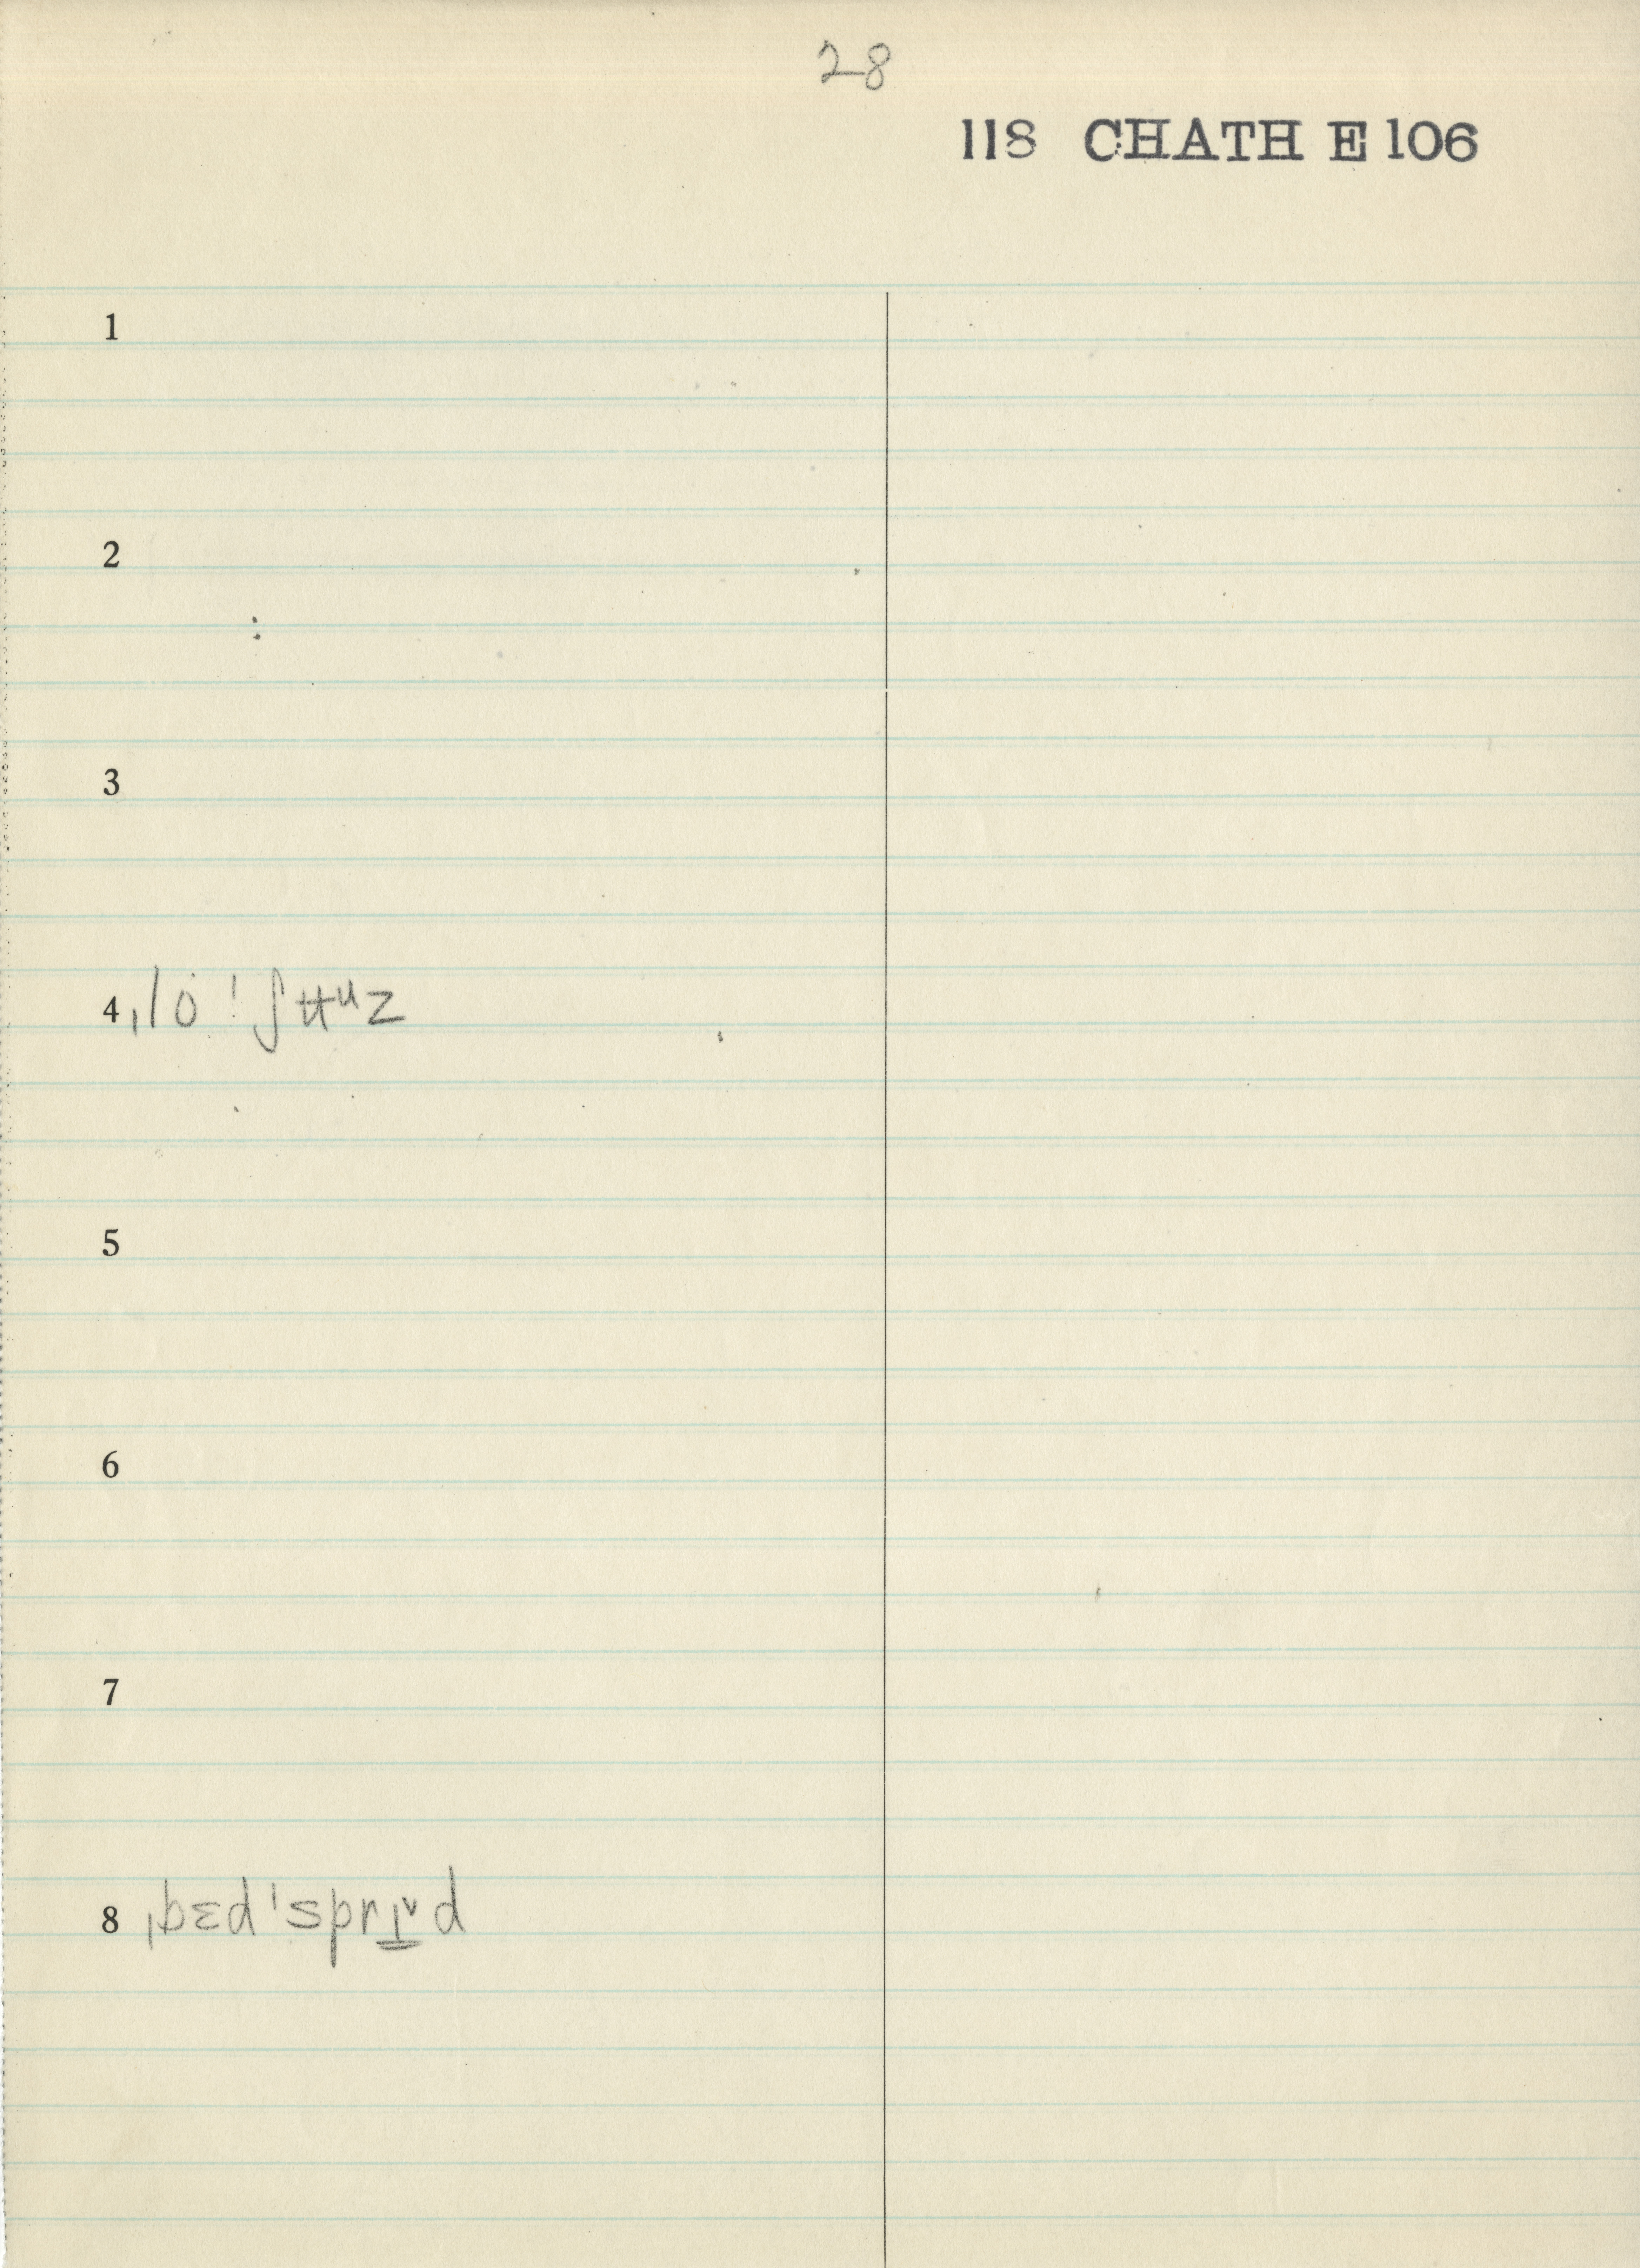 28
118 CHATH E 106
1
2
3
4 ˌlo ˈʃʉᵘz
5
6
7
8 ˌbɛdˈsprɪ̳ˇd